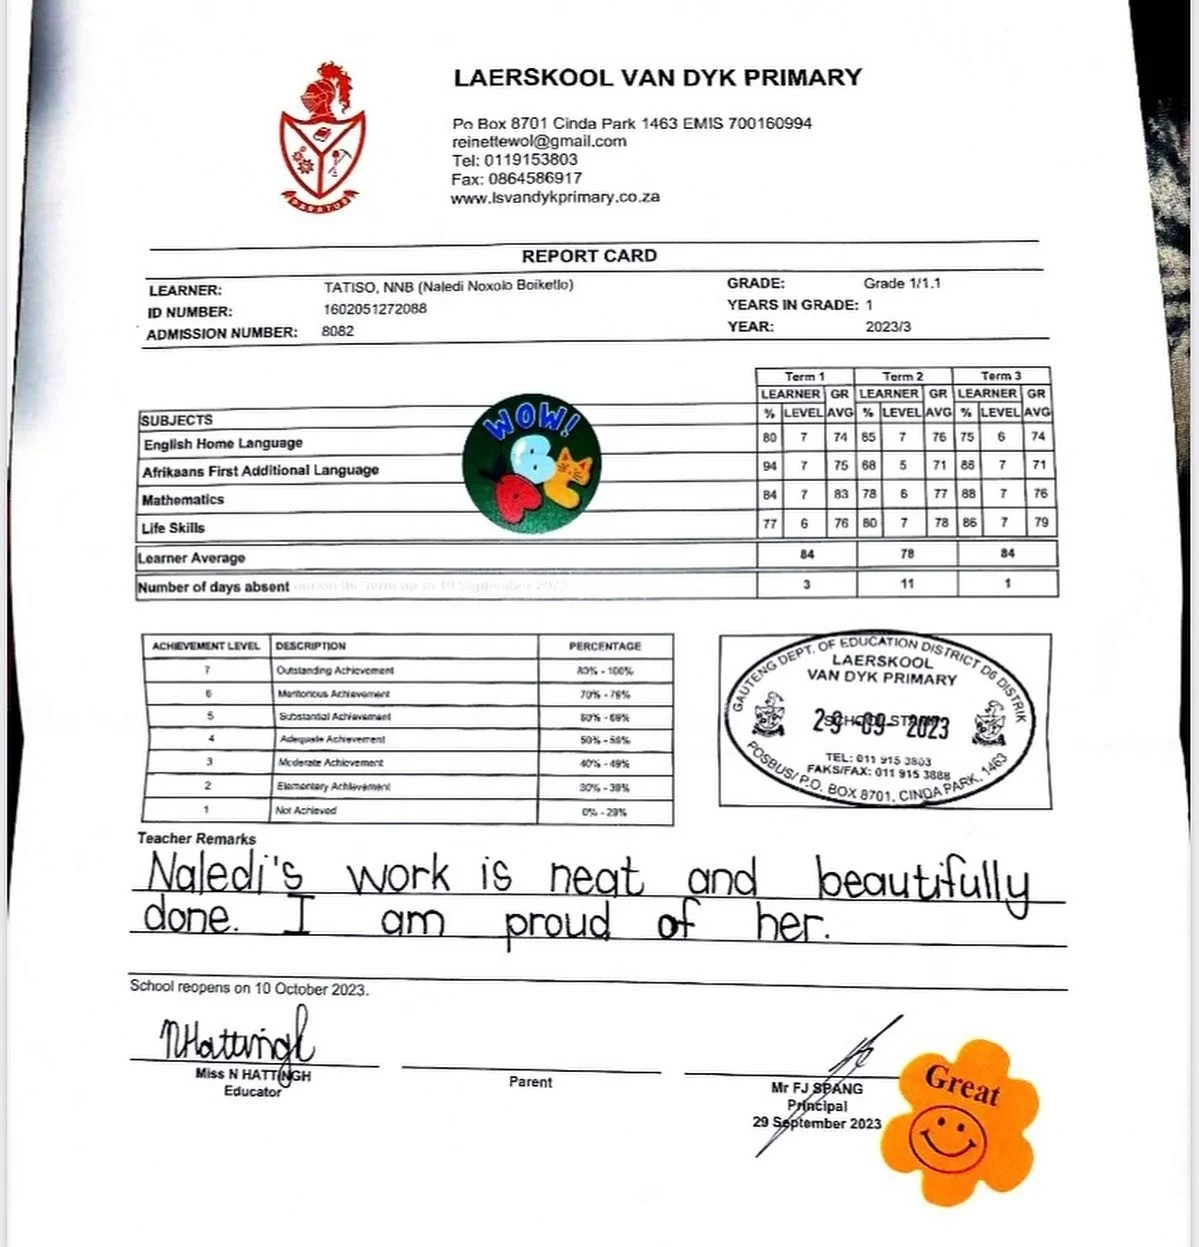 LAERSKOOL VAN DYK PRIMARY
Po Box 8701 Cinda Park 1463 EMIS 700160994
reinettewol@gmail.com
Tel: 0119153803
Fax: 0864586917
www.lsvandykprimary.co.za
REPORT CARD
LEARNER: TATISO, NNB (Naledi Noxolo Boiketlo) GRADE: Grade 1/1.1
ID NUMBER: 1602051272088 YEARS IN GRADE: 1
ADMISSION NUMBER: 8082 YEAR: 2023/3
Term 1 Term 2 Term 3
LEARNER GR LEARNER GR LEARNER GR
SUBJECTS % LEVEL AVG % LEVEL AVG % LEVEL AVG
English Home Language 80 7 74 85 7 76 75 6 74
Afrikaans First Additional Language 94 7 75 68 5 71 88 7 71
Mathematics 84 7 83 78 6 77 88 7 76
Life Skills 77 6 76 80 7 78 86 7 79
Learner Average 84 78 84
Number of days absent 3 11 1
WOW!
A B C
ACHIEVEMENT LEVEL DESCRIPTION PERCENTAGE
7 Outstanding Achievement 80% - 100%
6 Meritorious Achievement 70% - 79%
5 Substantial Achievement 60% - 69%
4 Adequate Achievement 50% - 59%
3 Moderate Achievement 40% - 49%
2 Elementary Achievement 30% - 39%
1 Not Achieved 0% - 29%
GAUTENG DEPT. OF EDUCATION DISTRICT D6 DISTRIK
LAERSKOOL
VAN DYK PRIMARY
SCHOOL STAMP
29 -09- 2023
TEL: 011 915 3803
FAKS/FAX: 011 915 3888
POSBUS/ P.O. BOX 8701, CINDA PARK, 1463
Teacher Remarks
Naledi's work is neat and beautifully
done. I am proud of her.
School reopens on 10 October 2023.
NHattingh
Miss N HATTINGH
Educator
Parent
Mr FJ SPANG
Principal
29 September 2023
Great